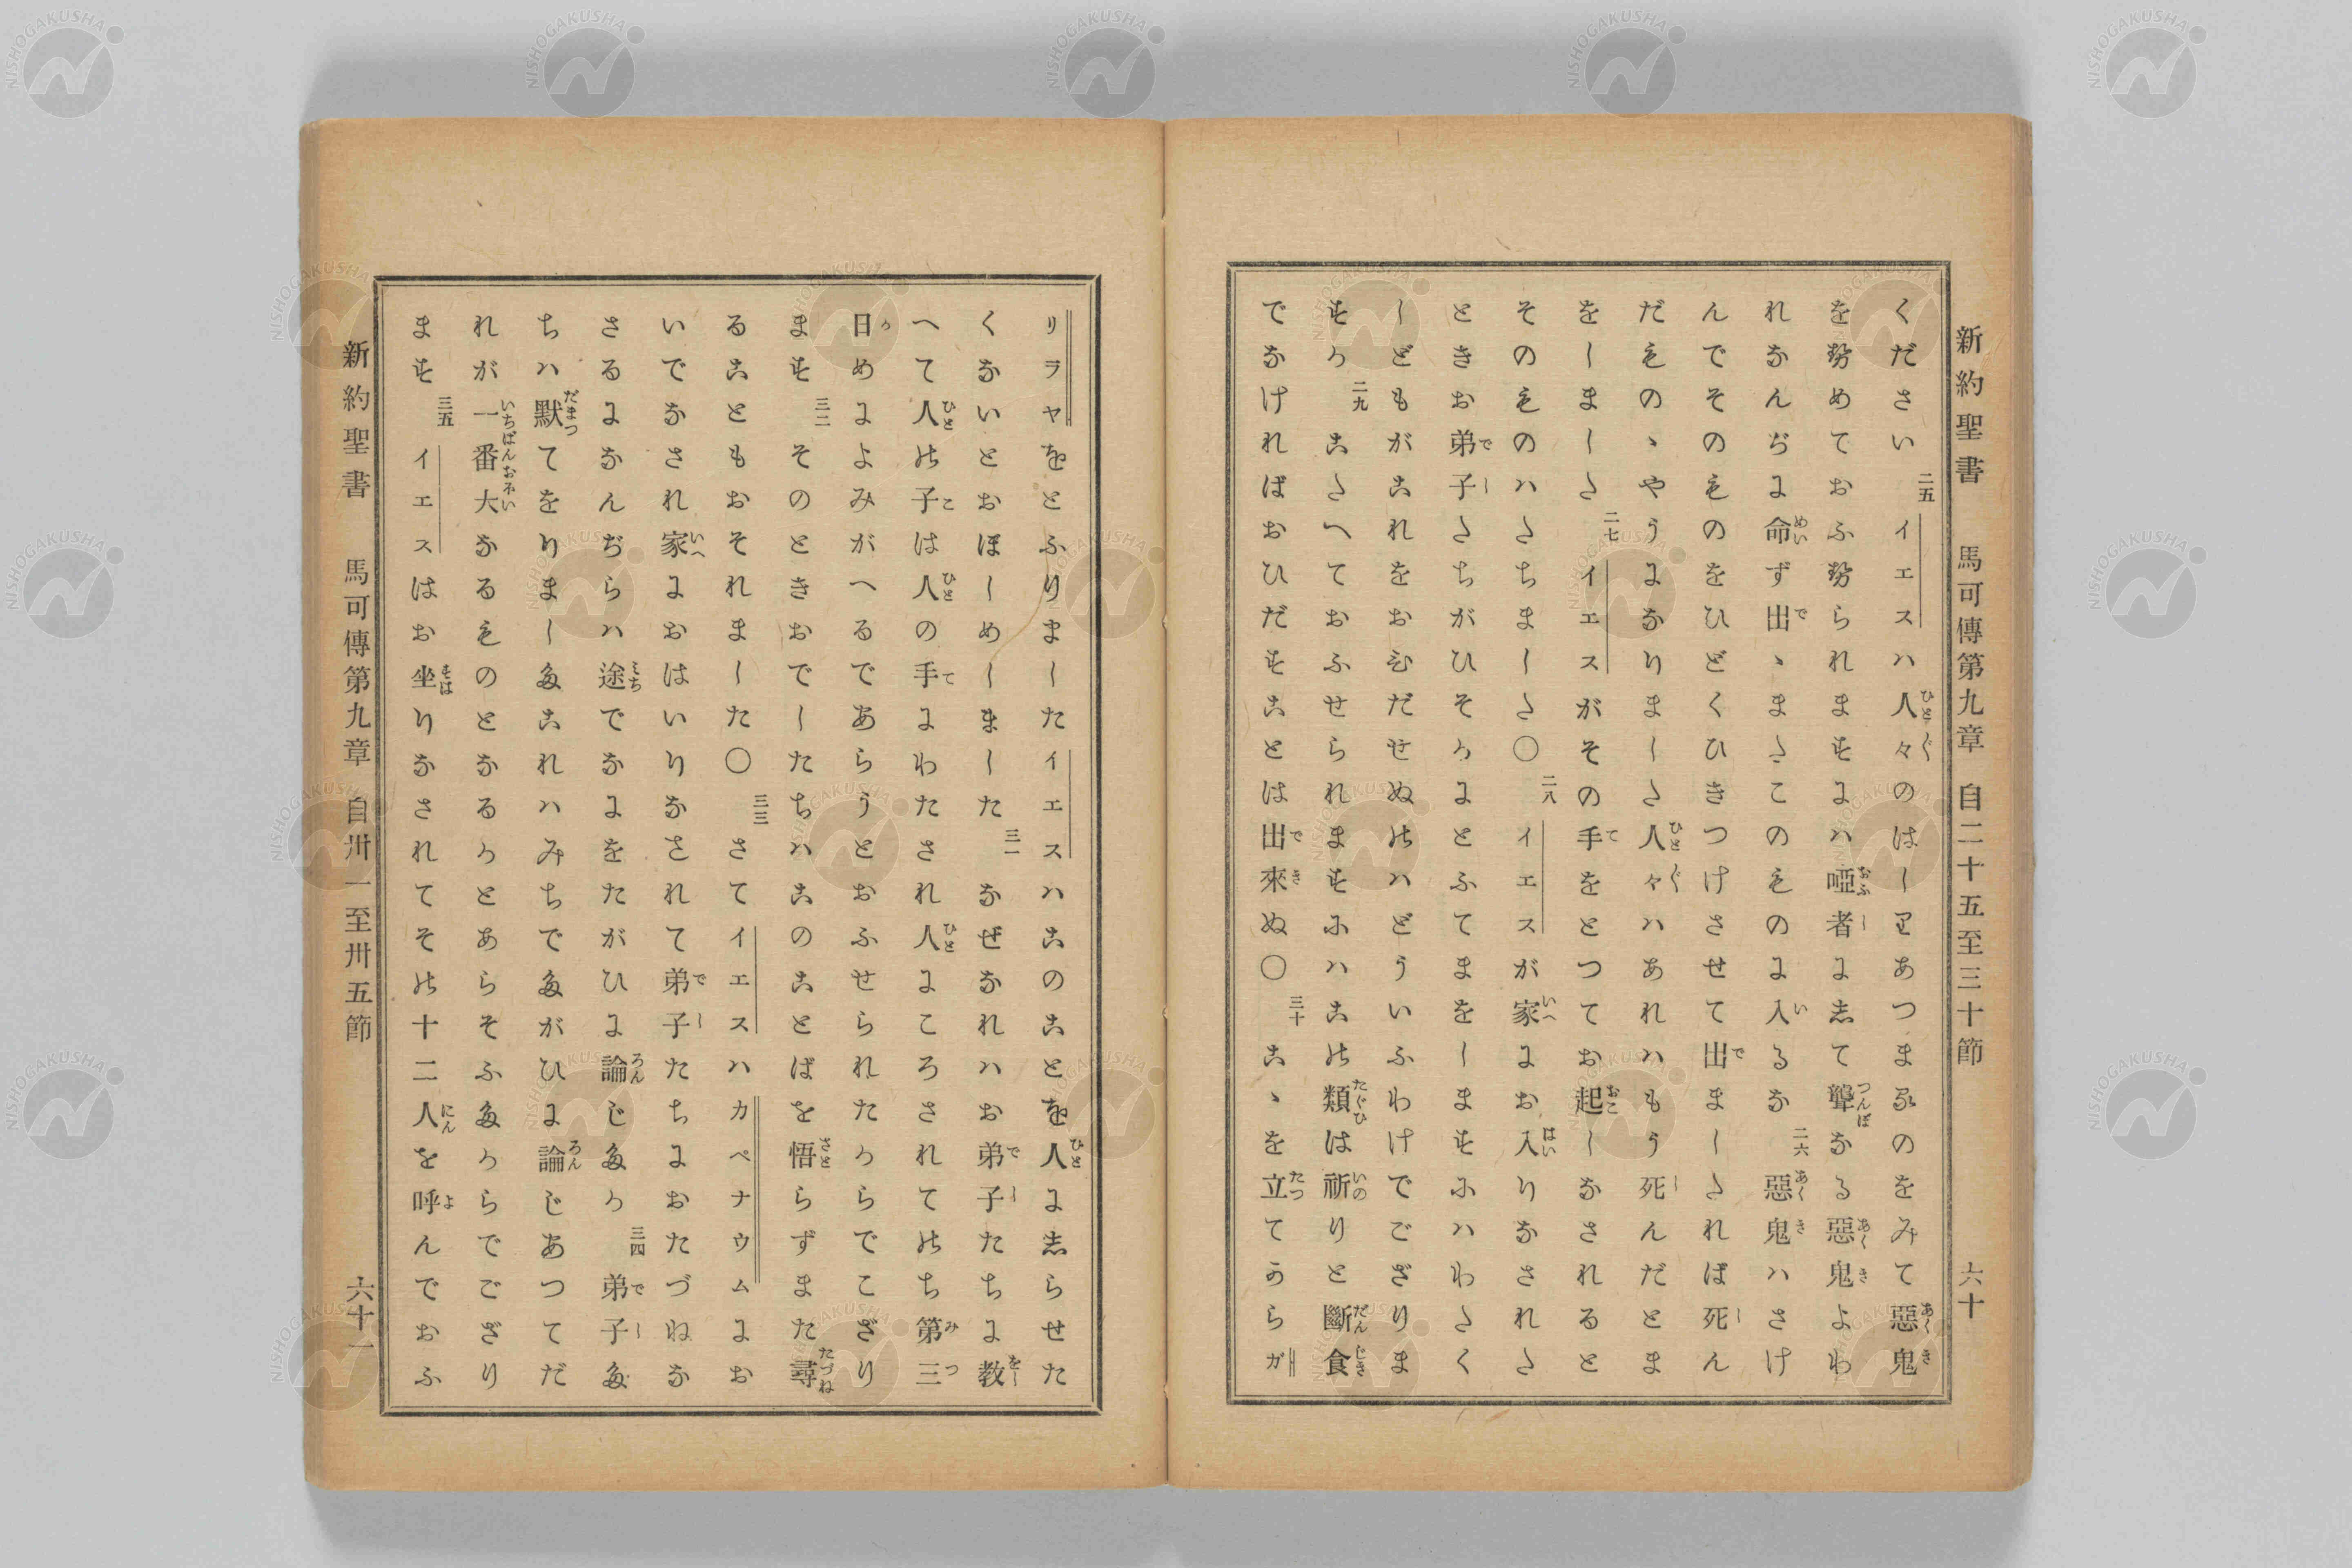 新約聖書　馬可傳第九章　自二十五至三十節　六十
ください 二五 イエスハ人々のはしりあつまるのをみて惡鬼
をせめておふせられますにハ啞者にして聾なる惡鬼よわ
れなんぢに命ず出ゝまたこのものに入るな 二六 惡鬼ハさけ
んでそのものをひどくひきつけさせて出ましたれば死ん
だものゝやうになりました人々ハあれハもう死んだとま
をしました 二七 イエスがその手をとつてお起しなされると
そのものハたちました〇 二八 イエスが家にお入りなされた
ときお弟子たちがひそかにとふてまをしますにハわたく
しどもがこれをおひだせぬのハどういふわけでござりま
すか 二九 こたへておふせられますにハこの類は祈りと斷食
でなければおひだすことは出來ぬ〇 三十 こゝを立てからガ
リラヤをとふりましたイエスハこのことを人にしらせた
くないとおほしめしました 三一 なぜなれハお弟子たちに教
へて人の子は人の手にわたされ人にころされてのち第三
日めによみがへるであらうとおふせられたからでこざり
ます 三二 そのときおでしたちハこのことばを悟らずまた尋
ることもおそれました〇 三三 さてイエスハカペナウムにお
いでなされ家におはいりなされて弟子たちにおたづねな
さるになんぢらハ途でなにをたがひに論じたか 三四 弟子た
ちハ默てをりましたこれハみちでたがひに論じあつてだ
れが一番大なるものとなるかとあらそふたからでござり
ます 三五 イエスはお坐りなされてその十二人を呼んでおふ
新約聖書　馬可傳第九章　自卅一至卅五節　六十一